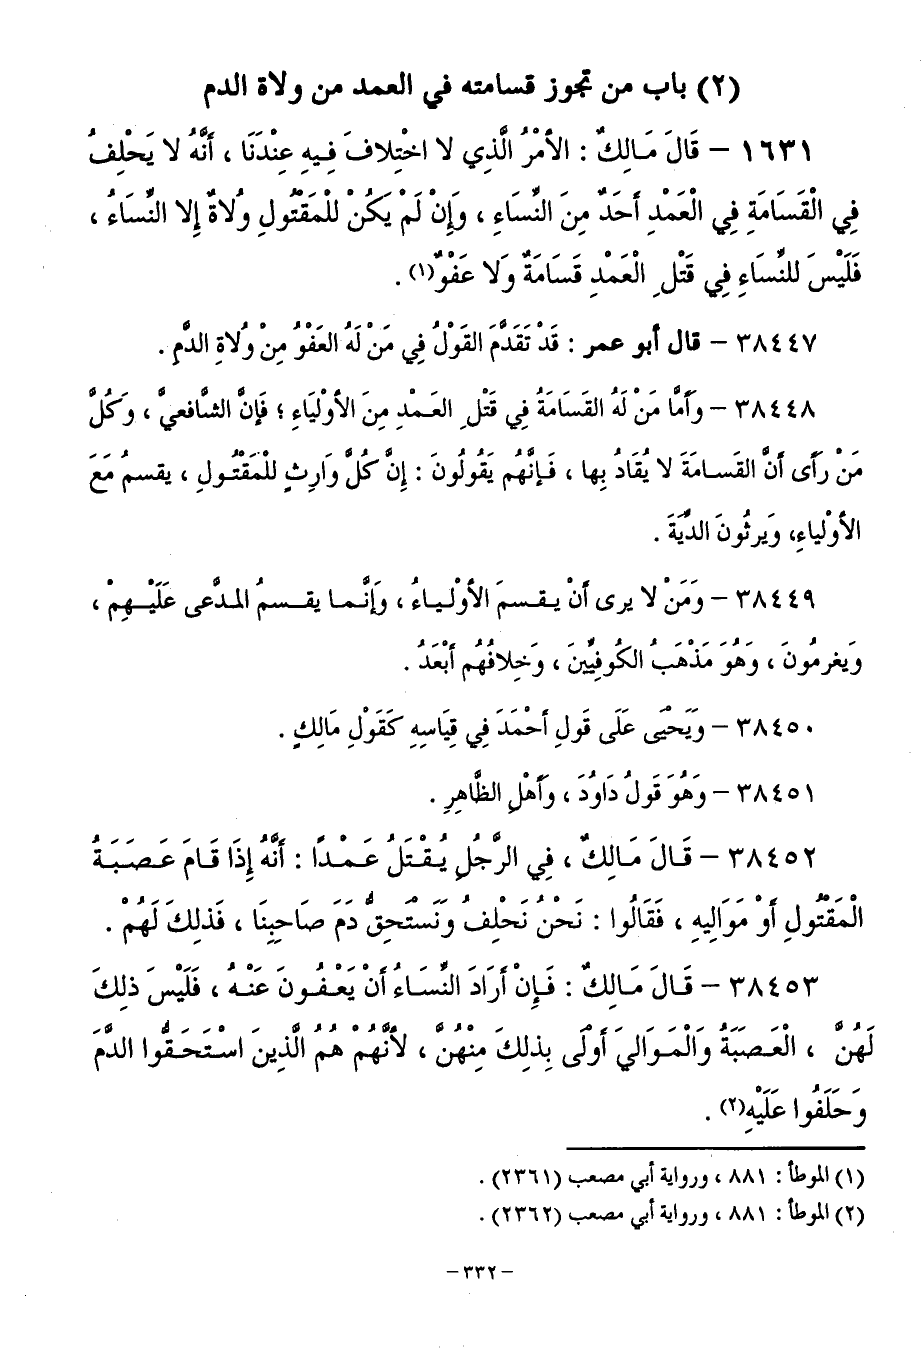 (٢) باب من تجوز قسامته في العمد من ولاة الدم
١٦٣١ – قَالَ مَالِكٌ : الأَمْرُ الَّذِي لا اخْتِلافَ فِيهِ عِنْدَنَا ، أَنَّهُ لا يَحْلِفُ
فِي الْقَسَامَةِ فِي الْعَمْدِ أَحَدٌ مِنَ النِّسَاءِ ، وَإِنْ لَمْ يَكُنْ لِلْمَقْتُولِ وُلاةٌ إِلا النِّسَاءُ ،
فَلَيْسَ لِلنِّسَاءِ فِي قَتْلِ الْعَمْدِ قَسَامَةٌ وَلا عَفْوٌ(١) .
٣٨٤٤٧ – قال أبو عمر : قَدْ تَقَدَّمَ القَوْلُ فِي مَنْ لَهُ العَفْوُ مِنْ وُلاةِ الدَّمِ .
٣٨٤٤٨ – وَأَمَّا مَنْ لَهُ القَسَامَةُ فِي قَتْلِ العَمْدِ مِنَ الأَوْلِيَاءِ ؛ فَإِنَّ الشَّافعيَّ ، وَكُلَّ
مَنْ رَأَى أَنَّ القَسَامَةَ لا يُقَادُ بِها ، فَإِنَّهُم يَقُولُونَ : إِنَّ كُلَّ وَارِثٍ لِلْمَقْتُولِ ، يقسمُ مَعَ
الأوْلياءِ، وَيرِثُونَ الدِّيَةَ .
٣٨٤٤٩ – وَمَنْ لا يرى أَنْ يقسمَ الأوْليـاءُ ، وَإِنَّمـا يقـسمُ المدَّعى عَلَيْهِمْ ،
وَيغرمُونَ ، وَهُوَ مَذْهَبُ الكُوفِيِّينَ ، وَخِلافُهُم أَبْعَدُ .
٣٨٤٥٠ – وَيَحْيَى عَلَى قَولِ أَحْمَدَ فِي قِيَاسِهِ كَقَوْلِ مَالِكٍ .
٣٨٤٥١ – وَهُوَ قَولُ دَاوُدَ ، وَأَهْلِ الظَّاهِرِ .
٣٨٤٥٢ – قَـالَ مَـالِكٌ ، فِي الرَّجُلِ يُقْتَلُ عَمْدًا : أَنَّهُ إِذَا قَـامَ عَصَبَةُ
الْمَقْتُولِ أَوْ مَوَالِيهِ ، فَقَالُوا : نَحْنُ نَحْلِفُ وَنَسْتَحِقُّ دَمَ صَاحِبِنَا ، فَذلِكَ لَهُمْ .
٣٨٤٥٣ – قَـالَ مَـالِكٌ : فَـإِنْ أَرَادَ النِّسَاءُ أَنْ يَعْفُونَ عَنْهُ ، فَلَيْسَ ذلِكَ
لَهُنَّ ، الْعَصَبَةُ وَالْمَوَالِيَ أَوْلَى بِذلِكَ مِنْهُنَّ ، لأَنَّهُمْ هُمُ الَّذِينَ اسْتَحَقُّوا الدَّمَ
وَحَلَفُوا عَلَيْهِ(٢) .
(١) الموطأ : ٨٨١ ، ورواية أبي مصعب (٢٣٦١) .
(٢) الموطأ : ٨٨١ ، ورواية أبي مصعب (٢٣٦٢) .
–٣٣٢–